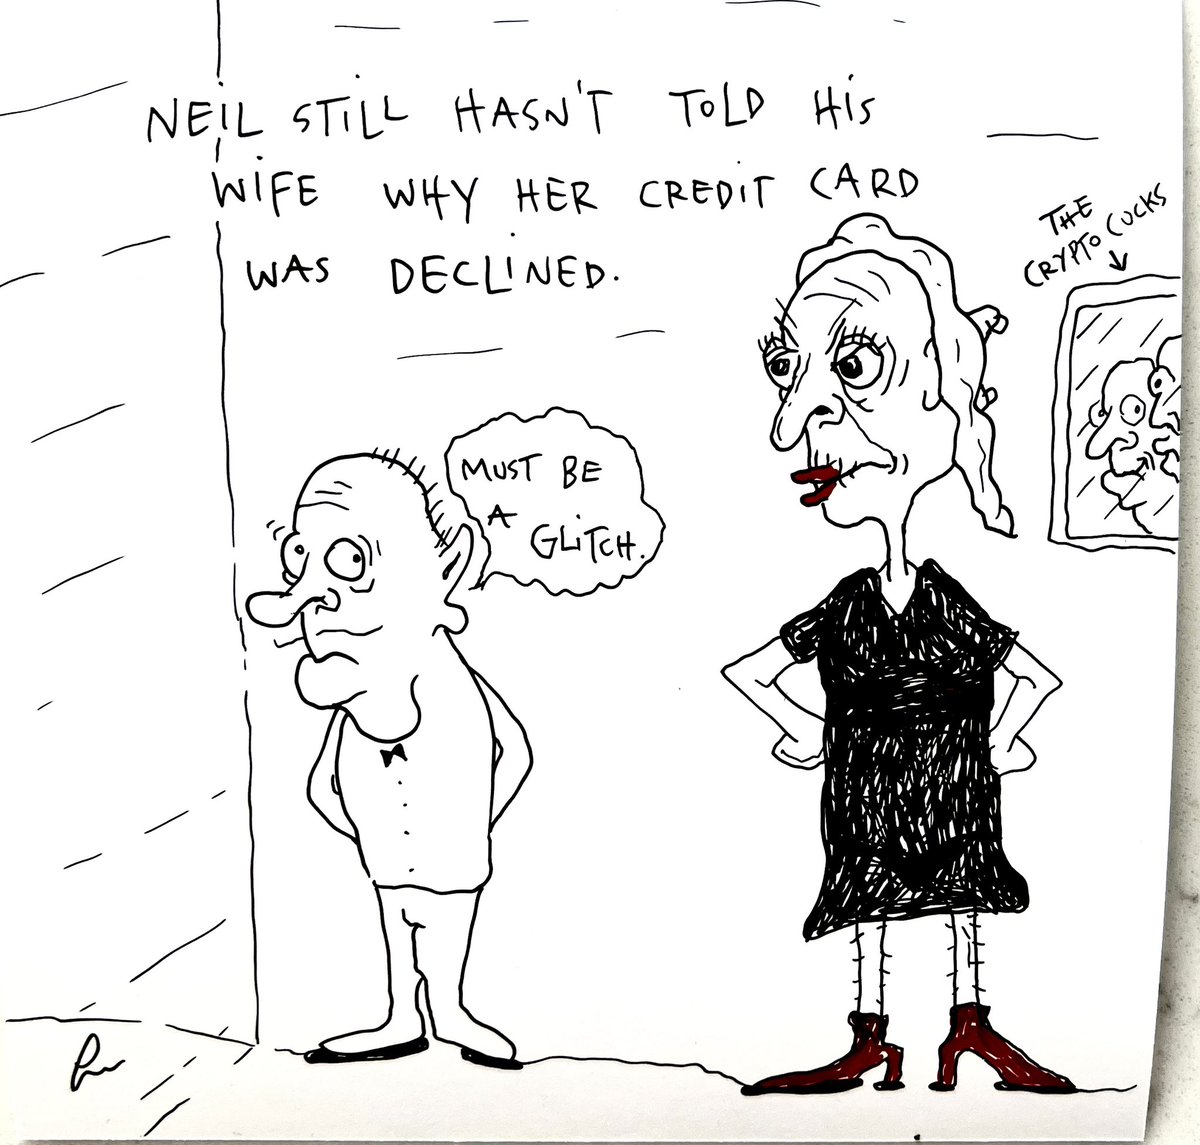 NEIL STILL HASN'T TOLD HIS
WIFE WHY HER CREDIT CARD
WAS DECLINED.
THE
CRYPTO CUCKS
MUST BE
A
GLITCH.